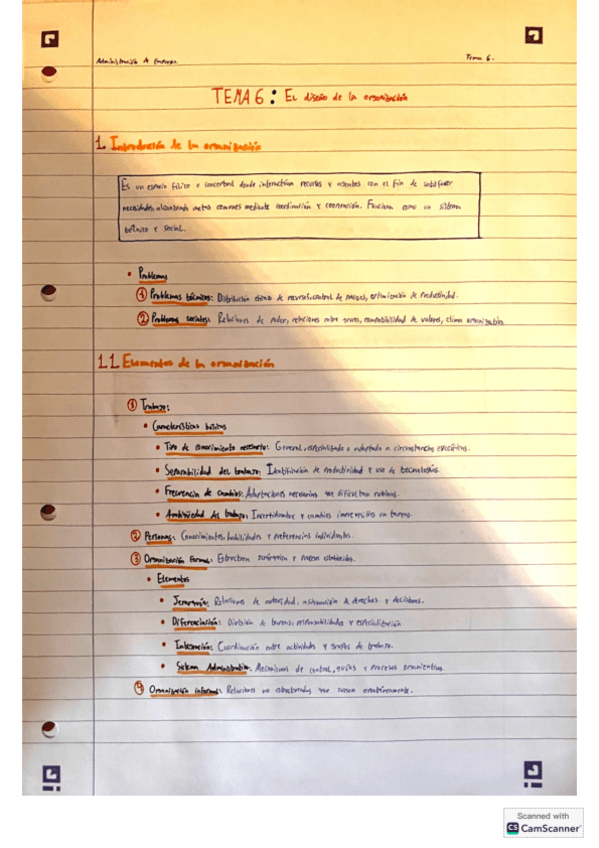 Administración de Empresa Tema 6.
TEMA 6: El diseño de la organización
1. Introducción de la organización
Es un espacio físico o conceptual donde interactúan recursos y agentes con el fin de satisfacer
necesidades alcanzando metas comunes mediante coordinación y cooperación. Funciona como un sistema
técnico y social.
• Problemas
① Problemas técnicos: Distribución de control de procesos, optimización de productividad.
② Problemas sociales: Relaciones de poder, relaciones entre grupos, compatibilidad de valores, clima organizativo
1.1. Elementos de la organización
① Trabajo:
• Características básicas
• Tipo de conocimiento necesario: General, especializado o adaptado a circunstancias específicas.
• Separabilidad del trabajo: Identificación de productividad y uso de tecnologías.
• Frecuencia de cambios: Adaptaciones necesarias que dificultan rutinas.
• Ambigüedad del trabajo: Incertidumbre y cambios imprevistos en tareas.
② Personas: Conocimientos, habilidades y preferencias individuales.
③ Organización formal: Estructura jerárquica y procesos establecidos.
• Elementos
• Jerarquía: Relaciones de autoridad, asignación de derechos y decisiones.
• Diferenciación: División de tareas, responsabilidades y especialización.
• Integración: Coordinación entre actividades y grupos de trabajo.
• Sistem Administrativo: Mecanismos de control, guías y procesos organizativos.
④ Organización informal: Relaciones no estructuradas que surgen espontáneamente.
Scanned with
CS CamScanner